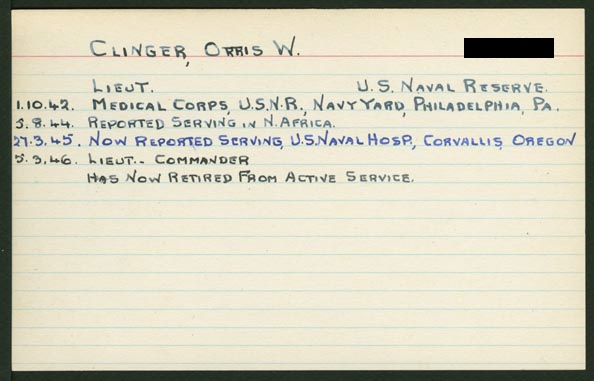 CLINGER, ORRIS W.
LIEUT. U.S. NAVAL RESERVE.
1.10.42. MEDICAL CORPS, U.S.N.R., NAVY YARD, PHILADELPHIA, PA.
3.8.44. REPORTED SERVING IN N. AFRICA.
27.3.45. NOW REPORTED SERVING, U.S. NAVAL HOSP., CORVALLIS, OREGON
5.3.46. LIEUT.- COMMANDER
HAS NOW RETIRED FROM ACTIVE SERVICE.